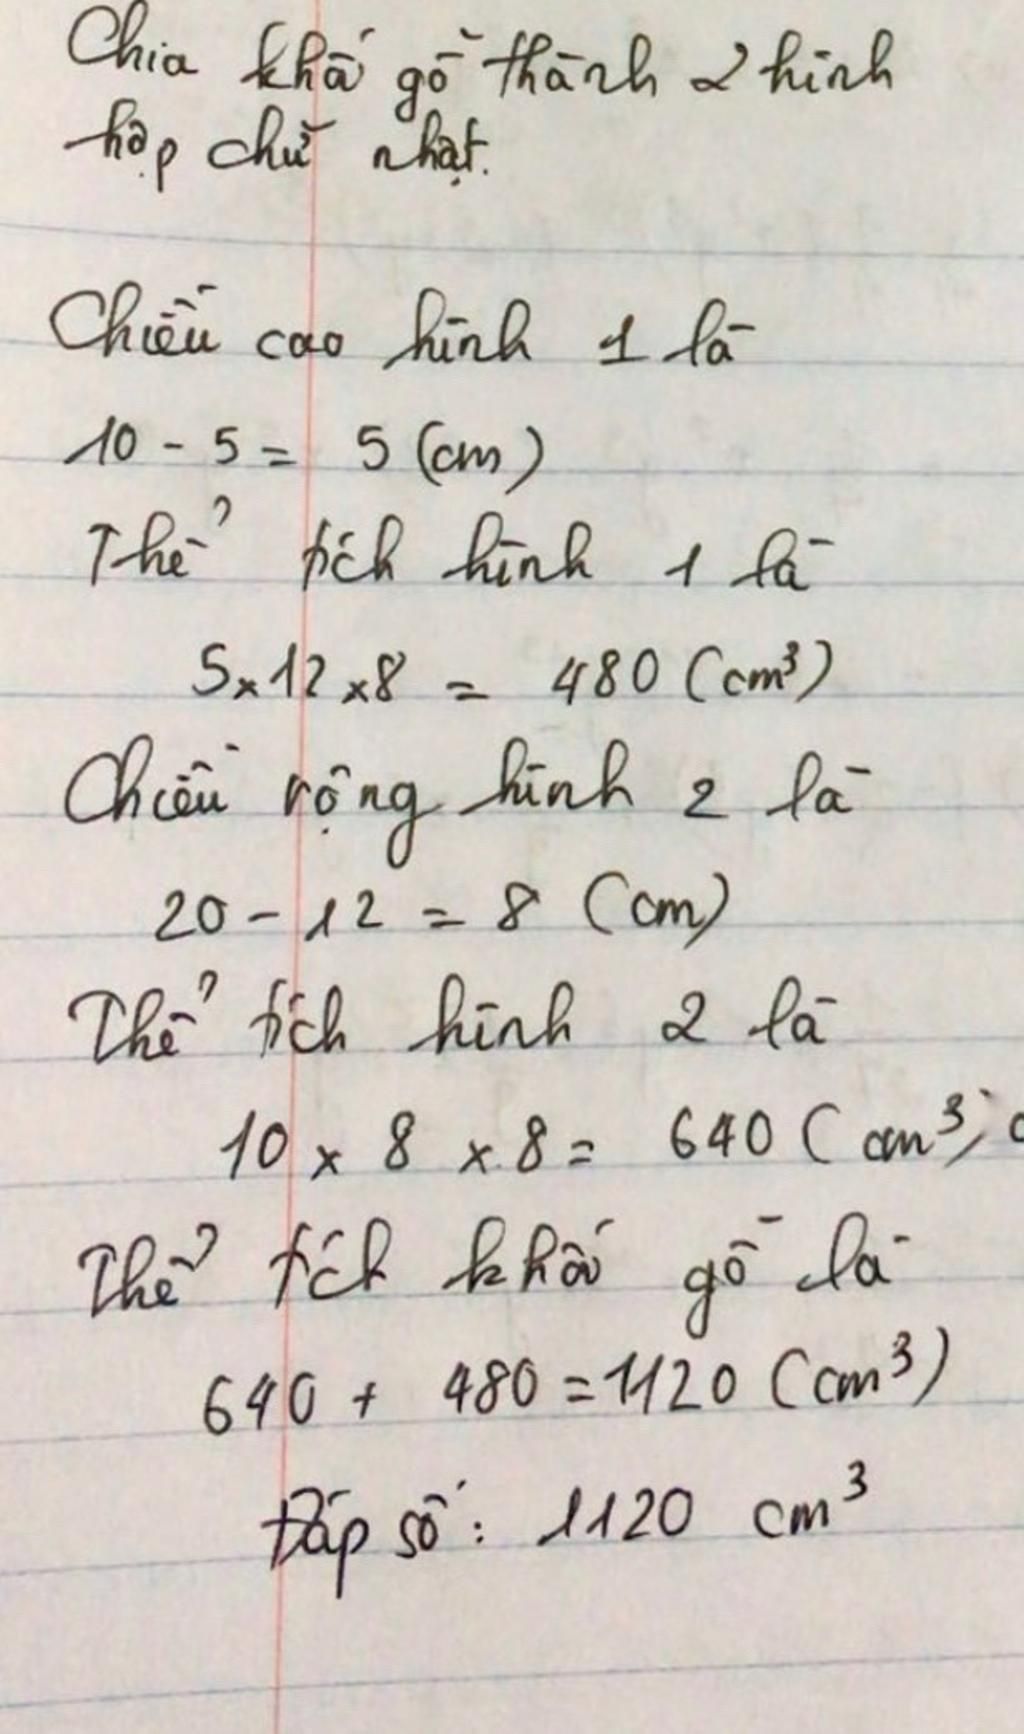 Chia khối gỗ thành 2 hình
hộp chữ nhật.
Chiều cao hình 1 là
10 - 5 = 5 (cm)
Thể tích hình 1 là
5 x 12 x 8 = 480 (cm³)
Chiều rộng hình 2 là
20 - 12 = 8 (cm)
Thể tích hình 2 là
10 x 8 x 8 = 640 (cm³)
Thể tích khối gỗ là
640 + 480 = 1120 (cm³)
Đáp số: 1120 cm³